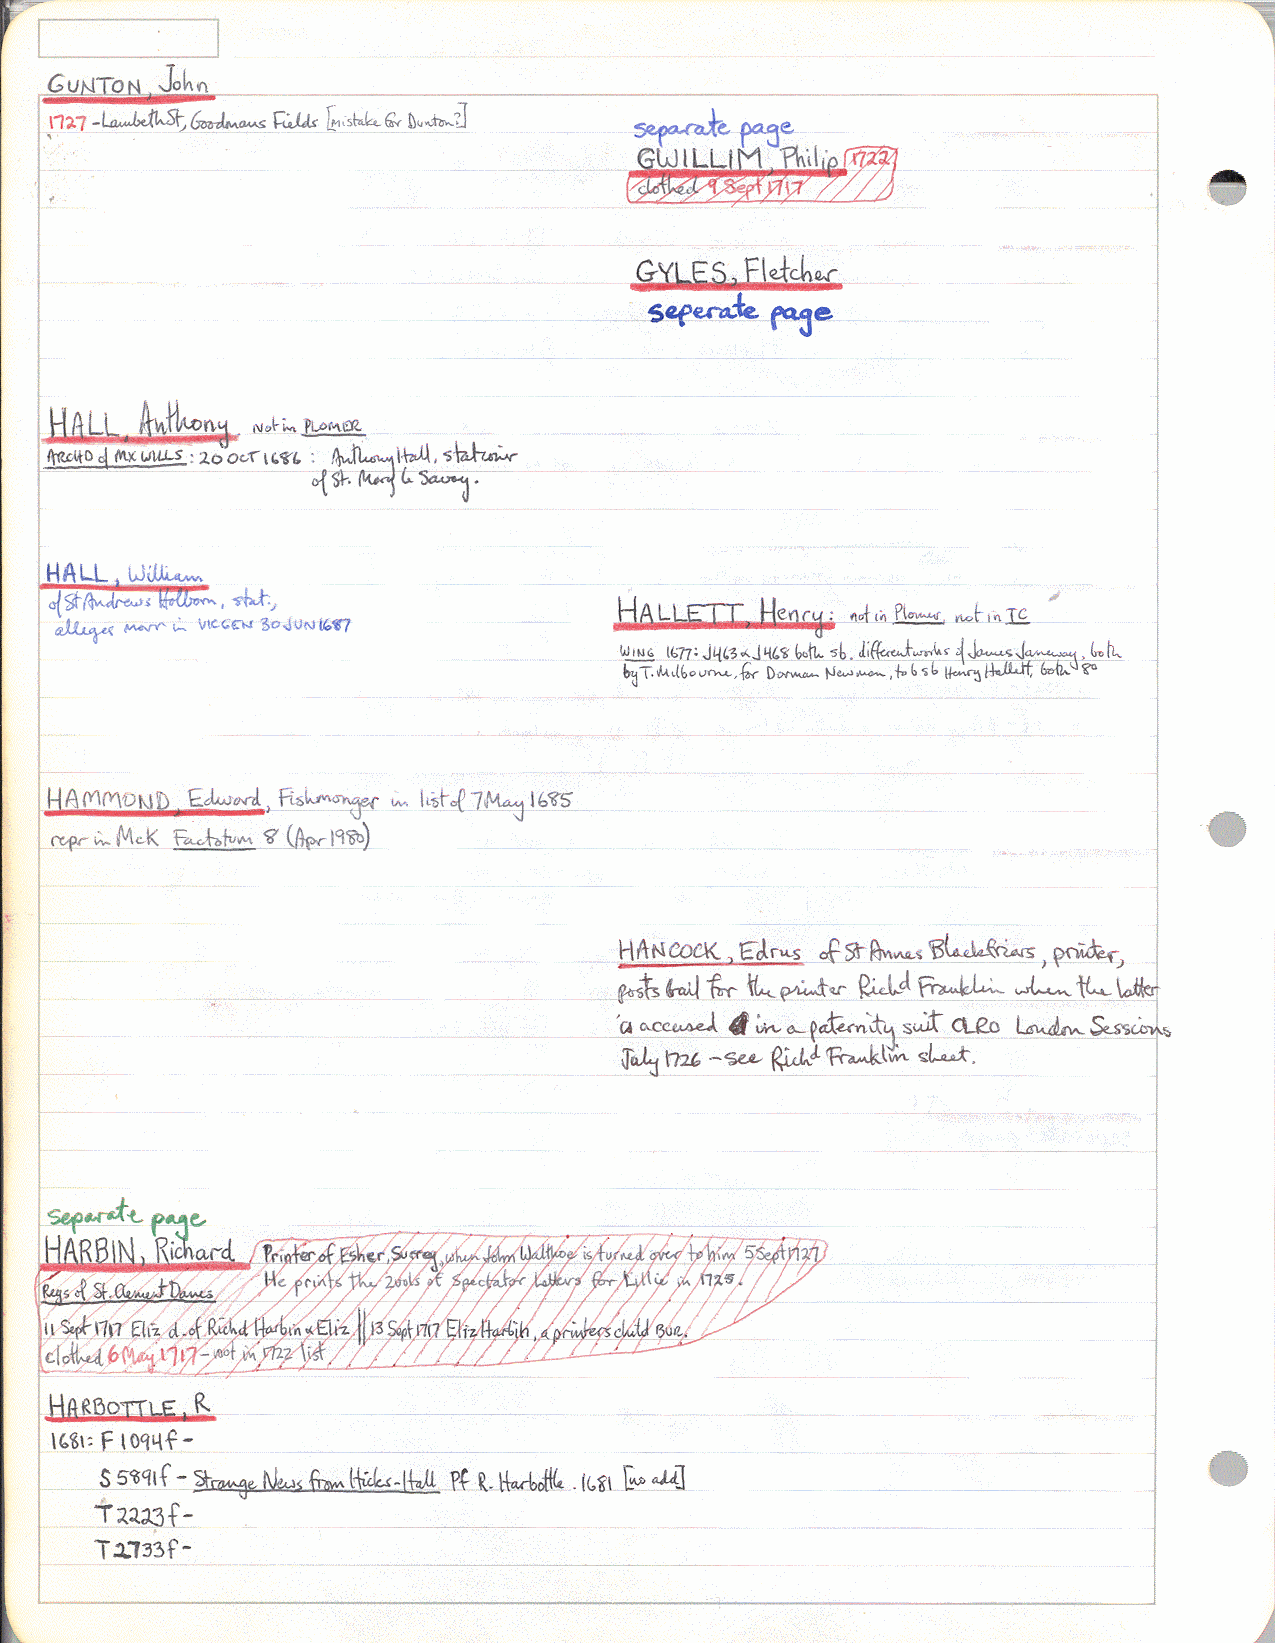 GUNTON, John
1727 - Lambeth St, Goodmans Fields [mistake for Dunton?]
separate page
GWILLIM, Philip 1722
clothed 9 Sept 1717
GYLES, Fletcher
seperate page
HALL, Anthony not in PLOMER
ARCHD of MX WILLS : 20 OCT 1686 : Anthony Hall, stationer
of St. Mary le Savoy.
HALL, William
of St Andrews Holborn, stat.,
alleges marr in VICGEN 30 JUN 1687
HALLETT, Henry: not in Plomer, not in TC
WING 1677: J463 & J468 both sb. different works of James Janeway, both
by T. Milbourne, for Dorman Newman, to b sb Henry Hallett, both 8o
HAMMOND, Edward, Fishmonger in list of 7 May 1685
repr in McK Factotum 8 (Apr 1980)
HANCOCK, Edrus of St Annes Blackfriars, printer,
posts bail for the printer Richd Franklin when the latter
is accused in a paternity suit CLRO London Sessions
July 1726 - see Richd Franklin sheet.
separate page
HARBIN, Richard Printer of Esher, Surrey, when John Walthoe is turned over to him 5 Sept 1727
Regs of St. Clement Danes He prints the 2vols of Spectator Letters for Lillie in 1725.
11 Sept 1717 Eliz d. of Richd Harbin & Eliz || 13 Sept 1717 Eliz Harbin, a printers child BUR.
clothed 6 May 1717 - not in 1722 list
HARBOTTLE, R
1681: F1094f -
S5891f - Strange News from Hicks-Hall Pf R. Harbottle . 1681 [no add]
T2223f -
T2733f -